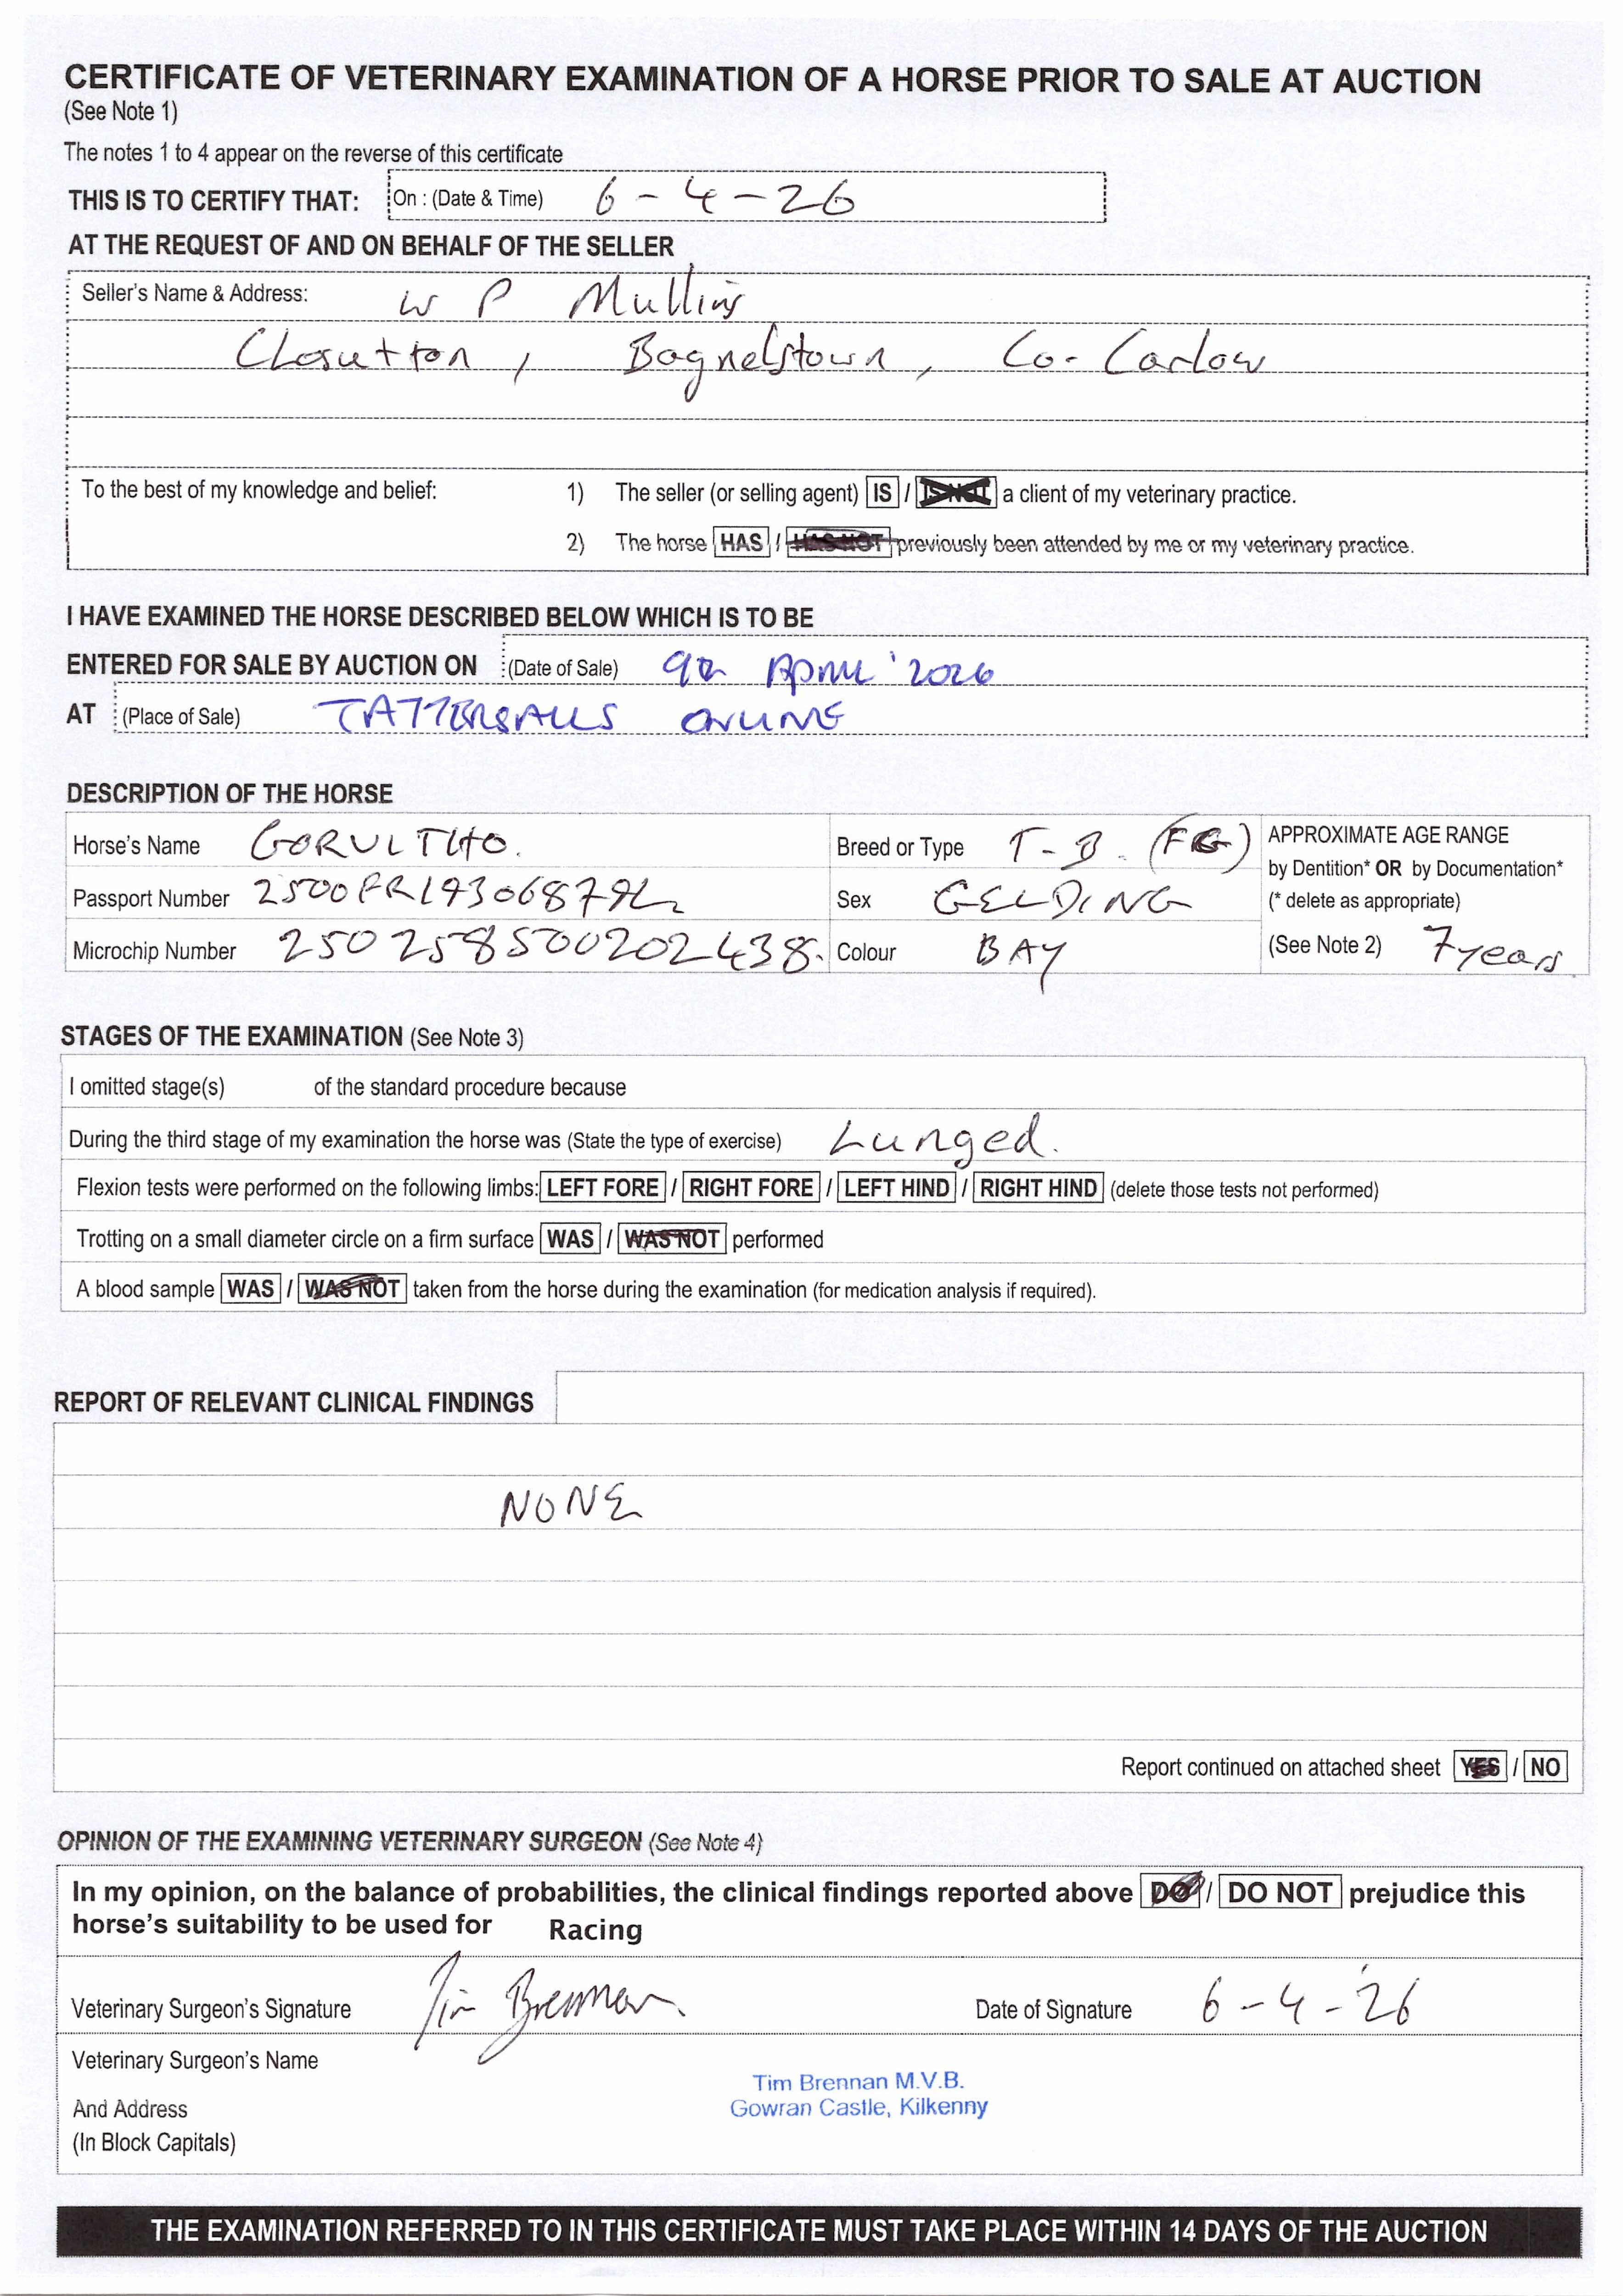 CERTIFICATE OF VETERINARY EXAMINATION OF A HORSE PRIOR TO SALE AT AUCTION
(See Note 1)
The notes 1 to 4 appear on the reverse of this certificate
THIS IS TO CERTIFY THAT: On : (Date & Time) 6 - 4 - 26
AT THE REQUEST OF AND ON BEHALF OF THE SELLER
Seller's Name & Address: W P Mullins
Closutton, Bagnelstown, Co. Carlow
To the best of my knowledge and belief: 1) The seller (or selling agent) IS / IS NOT a client of my veterinary practice.
2) The horse HAS / HAS NOT previously been attended by me or my veterinary practice.
I HAVE EXAMINED THE HORSE DESCRIBED BELOW WHICH IS TO BE
ENTERED FOR SALE BY AUCTION ON (Date of Sale) 9th April '2026
AT (Place of Sale) TATTERSALLS ONLINE
DESCRIPTION OF THE HORSE
Horse's Name Breed or Type T-B. (FG) APPROXIMATE AGE RANGE
by Dentition* OR by Documentation*
Passport Number Sex GELDING (* delete as appropriate)
Microchip Number 250258500202438. Colour BAY (See Note 2) 7 years
STAGES OF THE EXAMINATION (See Note 3)
I omitted stage(s) of the standard procedure because
During the third stage of my examination the horse was (State the type of exercise) Lunged.
Flexion tests were performed on the following limbs: LEFT FORE / RIGHT FORE / LEFT HIND / RIGHT HIND (delete those tests not performed)
Trotting on a small diameter circle on a firm surface WAS / WAS NOT performed
A blood sample WAS / WAS NOT taken from the horse during the examination (for medication analysis if required).
REPORT OF RELEVANT CLINICAL FINDINGS
NONE
Report continued on attached sheet YES / NO
OPINION OF THE EXAMINING VETERINARY SURGEON (See Note 4)
In my opinion, on the balance of probabilities, the clinical findings reported above DO / DO NOT prejudice this
horse's suitability to be used for Racing
Veterinary Surgeon's Signature Tim Brennan Date of Signature 6 - 4 - 26
Veterinary Surgeon's Name
Tim Brennan M.V.B.
And Address Gowran Castle, Kilkenny
(In Block Capitals)
THE EXAMINATION REFERRED TO IN THIS CERTIFICATE MUST TAKE PLACE WITHIN 14 DAYS OF THE AUCTION